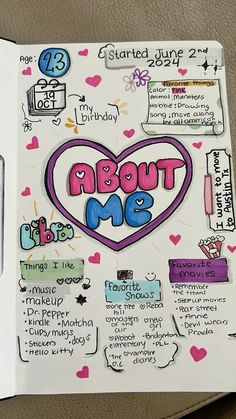 Age: 23
Started June 2nd
2024
19
OCT
my
birthday
favorite things
color: PINK
Animal: Manatees
Hobbie: Drawing
song: move along
by all american
I want to move
to Austin Tx
ABOUT
ME
Libra
Things I like
• music
• makeup
• Dr. Pepper
• kindle • Matcha
• Cups / mugs
• Stickers • dogs
• Hello Kitty
Favorite
Shows
• one tree • Reba
hill
• masters • new
of the girl
air
• abbott • Bridgerton
elementary • PLL
• the vampire
diaries
Favorite
movies
• Remember
the titans
• Step up movies
• Annie
• Devil wears
Prada